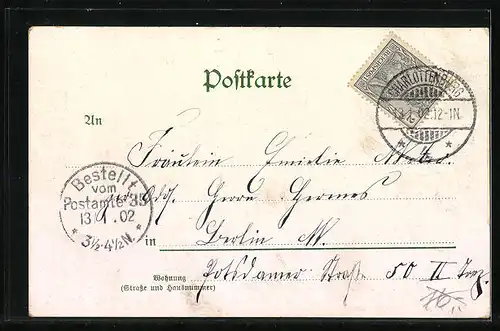 Postkarte
CHARLOTTENBURG
13 1 02.12-1N.
An
Fräulein Emilie
Bestellt
vom
Postamte 35
13/1.02
3½-4½N.
Herrn Hermes
in Berlin W.
Wohnung
(Straße und Hausnummer)
Potsdamer Straße 50 II Trp.